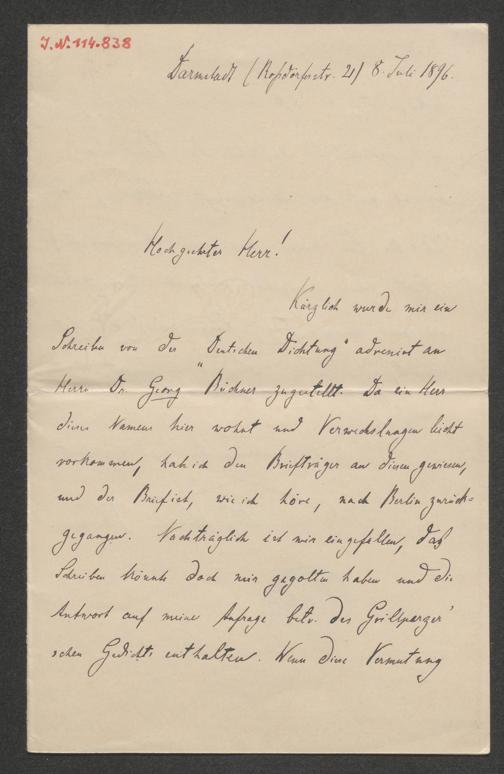 J.N. 114.838
Darmstadt (Roßdörferstr. 21) 8. Juli 1896.
Hochgeehrter Herr!
Kürzlich wurde mir ein
Schreiben von der „Deutschen Dichtung“ adressirt an
Herrn Dr. Georg Büchner zugestellt. Da ein Herr
dieses Namens hier wohnt und Verwechslungen leicht
vorkommen, hab ich den Briefträger an diesen gewiesen,
und der Brief ist, wie ich höre, nach Berlin zurück-
gegangen. Nachträglich ist mir eingefallen, daß
Schreiben könnte doch mir gegolten haben und die
Antwort auf meine Anfrage betr. des Grillparzer'
schen Gedichts enthalten. Wenn diese Vermutung